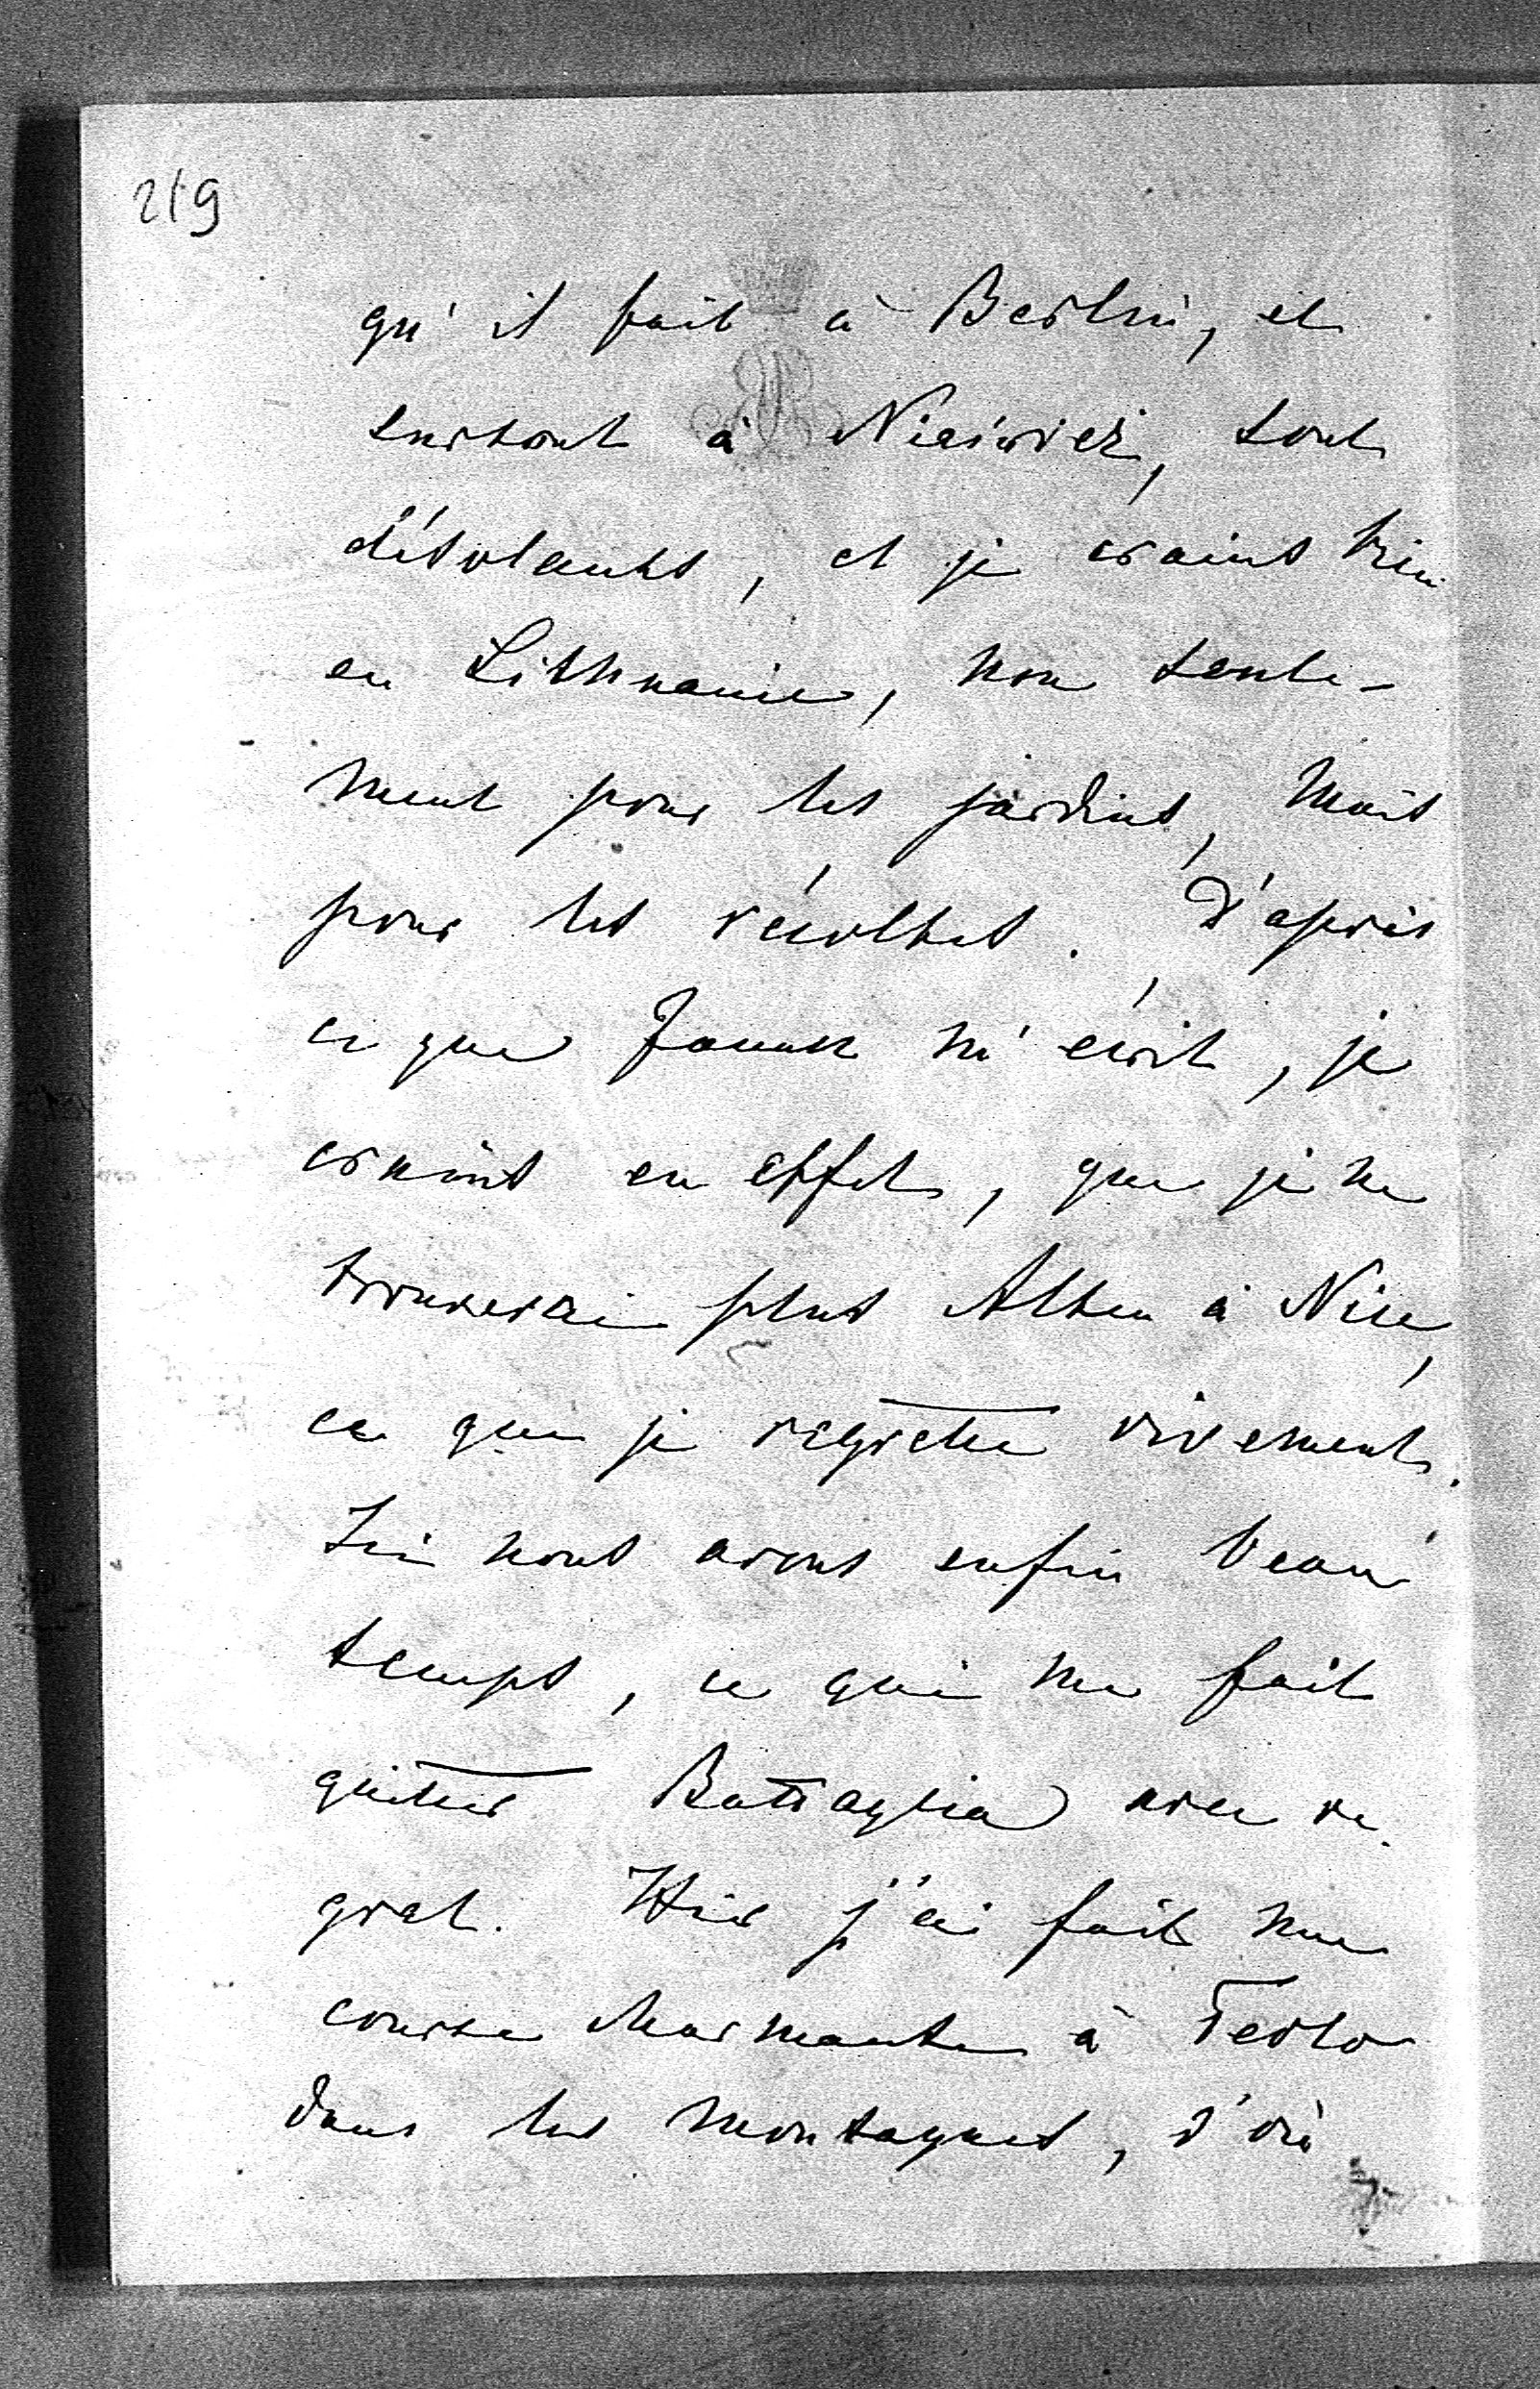 219
qu'il fait à Berlin, et
surtout à Nieśwież, sont
désolants, et je crains bien
en Lithuanie, non seule-
ment pour les jardins, mais
pour les récoltes. D'après
ce que m'écrit, je
crains en effet, que je ne
trouverai plus à Nice,
ce que je regrette vivement.
Ici nous avons enfin beau
temps, ce qui me fait
quitter Battaglia avec re-
gret. Hier j'ai fait une
course charmante à
dans les montagnes, d'où